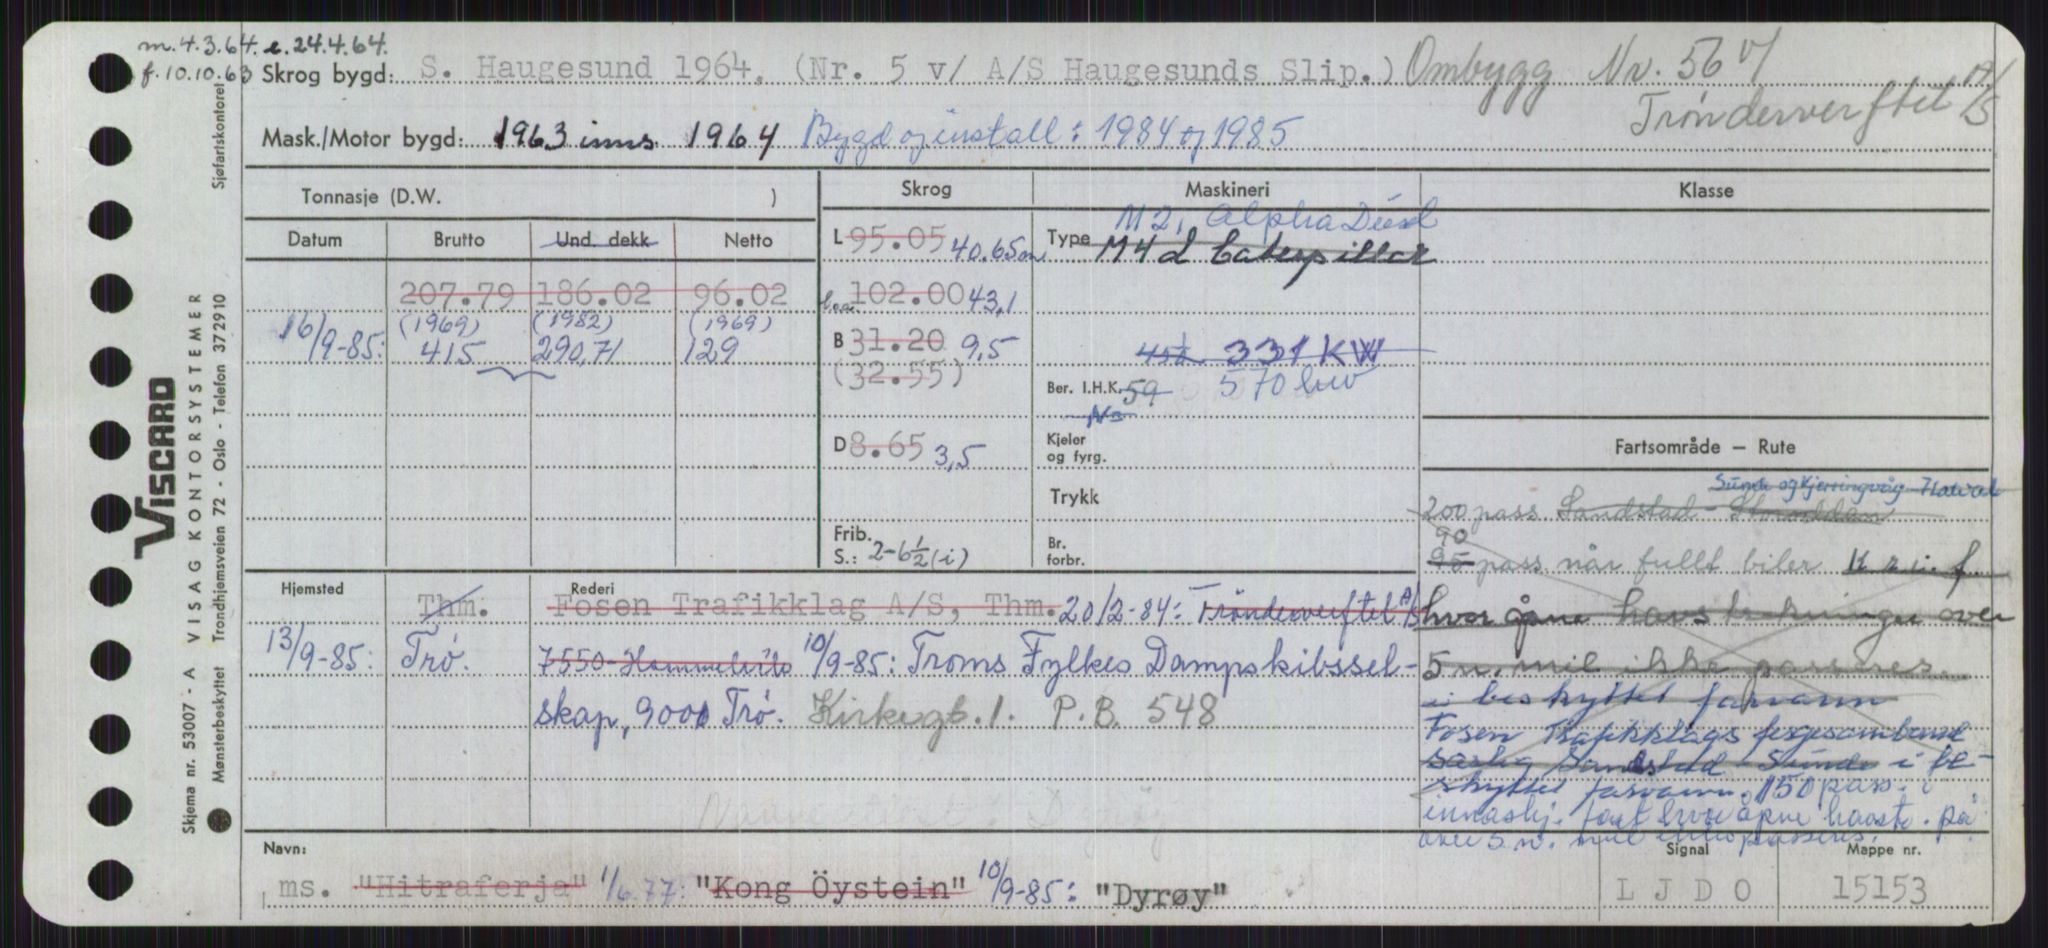 m. 4.3.64. e. 24.4.64.
f. 10.10.63 Skrog bygd: S. Haugesund 1964. (Nr. 5 v/ A/S Haugesunds Slip.) Ombygg Nr. 56 v/
Trønderverftet A/S
Mask./Motor bygd: 1963 inns. 1964 Bygd og install: 1984 og 1985
Tonnasje (D.W. ) Skrog Maskineri Klasse
Datum Brutto Und. dekk Netto
L 95.05 40.65m Type M 2, Alpha Diesel
M 4 Caterpillar
207.79 186.02 96.02 l.a. 102.00 43,1
(1969) (1982) (1969)
16/9-85: 415 290,71 129 B 31.20 9,5 331 KW
(32.55)
Ber. I.H.K. 59 570 kw
No
D 8.65 3,5 Kjeler
og fyrg.
Trykk
Frib.
S.: 2-6½ (i) Br.
forbr.
Fartsområde — Rute
Sunde og Kjerringvåg
200 pass Sandstad -
90
95 pass når fullt biler
hvor åpne havstrekninger over
5 n. mil ikke passeres.
i beskyttet farvann
Fosen Trafikklags fergesamband
særlig Sandstad - Sunde i be-
skyttet farvann. 150 pass. i
innaskj. fart hvor åpne havstr. på
over 5 n. mil ikke passeres.
Hjemsted Thm. Rederi Fosen Trafikklag A/S, Thm. 20/2-84: Trønderverftet A/S
13/9-85: Trø. 7550 Hommelvik 10/9-85: Troms Fylkes Dampskibssel-
skap, 9000 Trø. Kirkegt. 1. P.B. 548
Navn: Signal Mappe nr.
ms. "Hitraferja" 1/6.77: "Kong Öystein" 10/9-85: "Dyrøy" LJDO 15153
VISCARD
Skjema nr. 53007 - A VISAG KONTORSYSTEMER
Mønsterbeskyttet Trondhjemsveien 72 - Oslo - Telefon 372910 Sjøfartskontoret